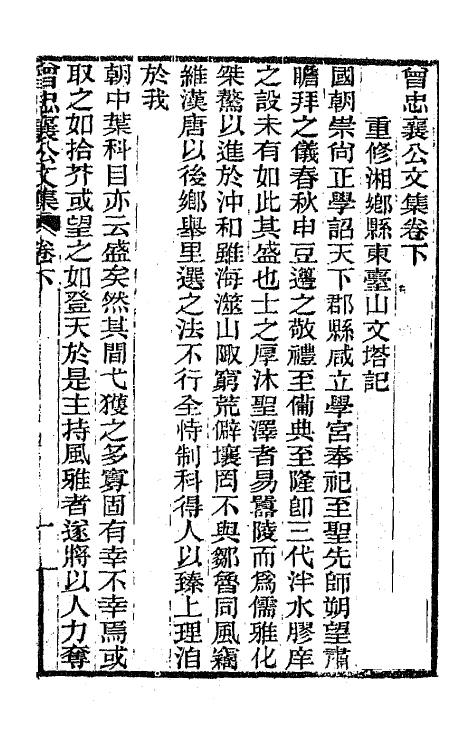 曾忠襄公文集卷下
重修湘鄉縣東臺山文塔記
國朝崇尚正學詔天下郡縣咸立學宮奉祀至聖先師朔望肅
瞻拜之儀春秋申豆籩之敬禮至備典至隆卽三代泮水膠庠
之設未有如此其盛也士之厚沐聖澤者易囂陵而爲儒雅化
桀驁以進於沖和雖海澨山陬窮荒僻壤罔不與鄒魯同風竊
維漢唐以後鄉舉里選之法不行全恃制科得人以臻上理洎
於我
朝中葉科目亦云盛矣然其間弋獲之多寡固有幸不幸焉或
取之如拾芥或望之如登天於是主持風雅者遂將以人力奪
曾忠襄公文集 卷下 一